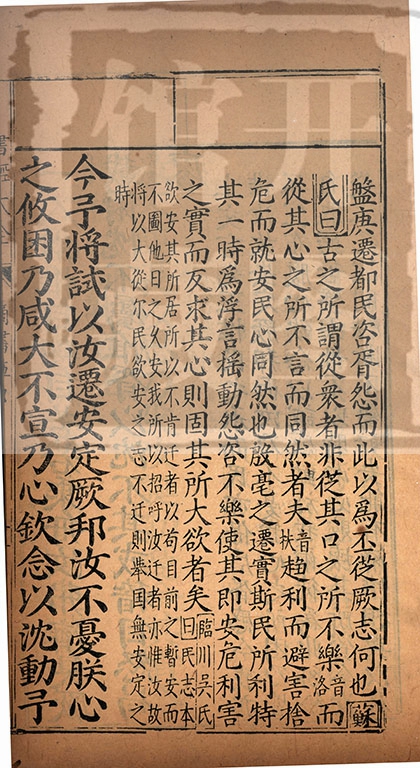 盤庚遷都民咨胥怨而此以爲丕從厥志何也蘇
氏曰古之所謂從衆者非從其口之所不樂音洛而
從其心之所不言而同然者夫音扶趨利而避害捨
危而就安民心同然也殷亳之遷實斯民所利特
其一時爲浮言揺動怨咨不樂使其即安危利害
之實而反求其心則固其所大欲者矣臨川吳氏曰民志本
欲安其所居所以不肯迁者以苟目前之暫安而
不圖他日之久安我所以招呼汝迁者亦惟汝故
將以大從尔民欲安之志不迁則舉國無安定之
時
今予將試以汝遷安定厥邦汝不憂朕心
之攸困乃咸大不宣乃心欽念以沈動予